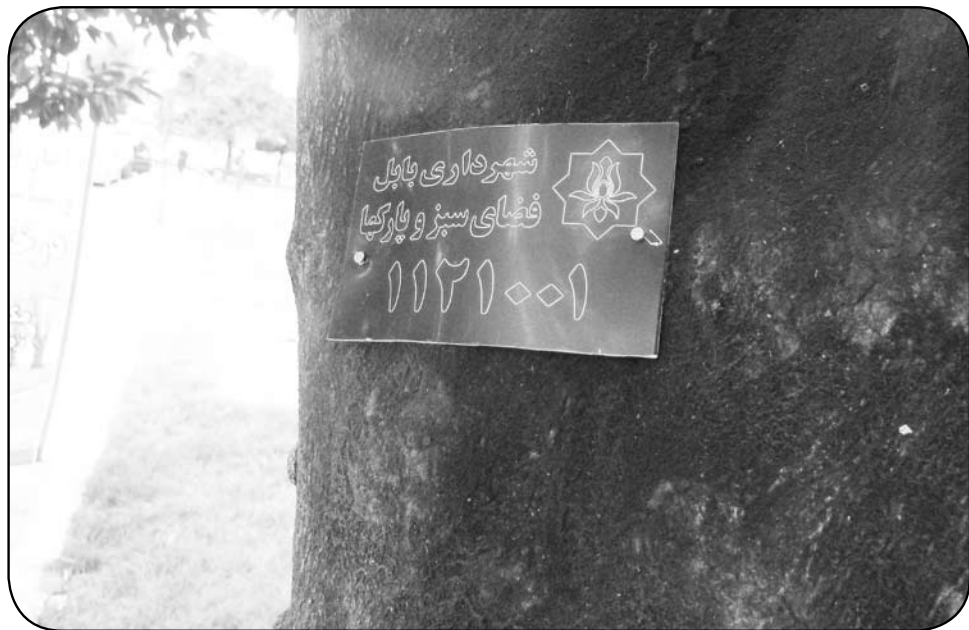 شهرداری بابل
فضای سبز و پارکها
۱۱۲۱۰۰۱